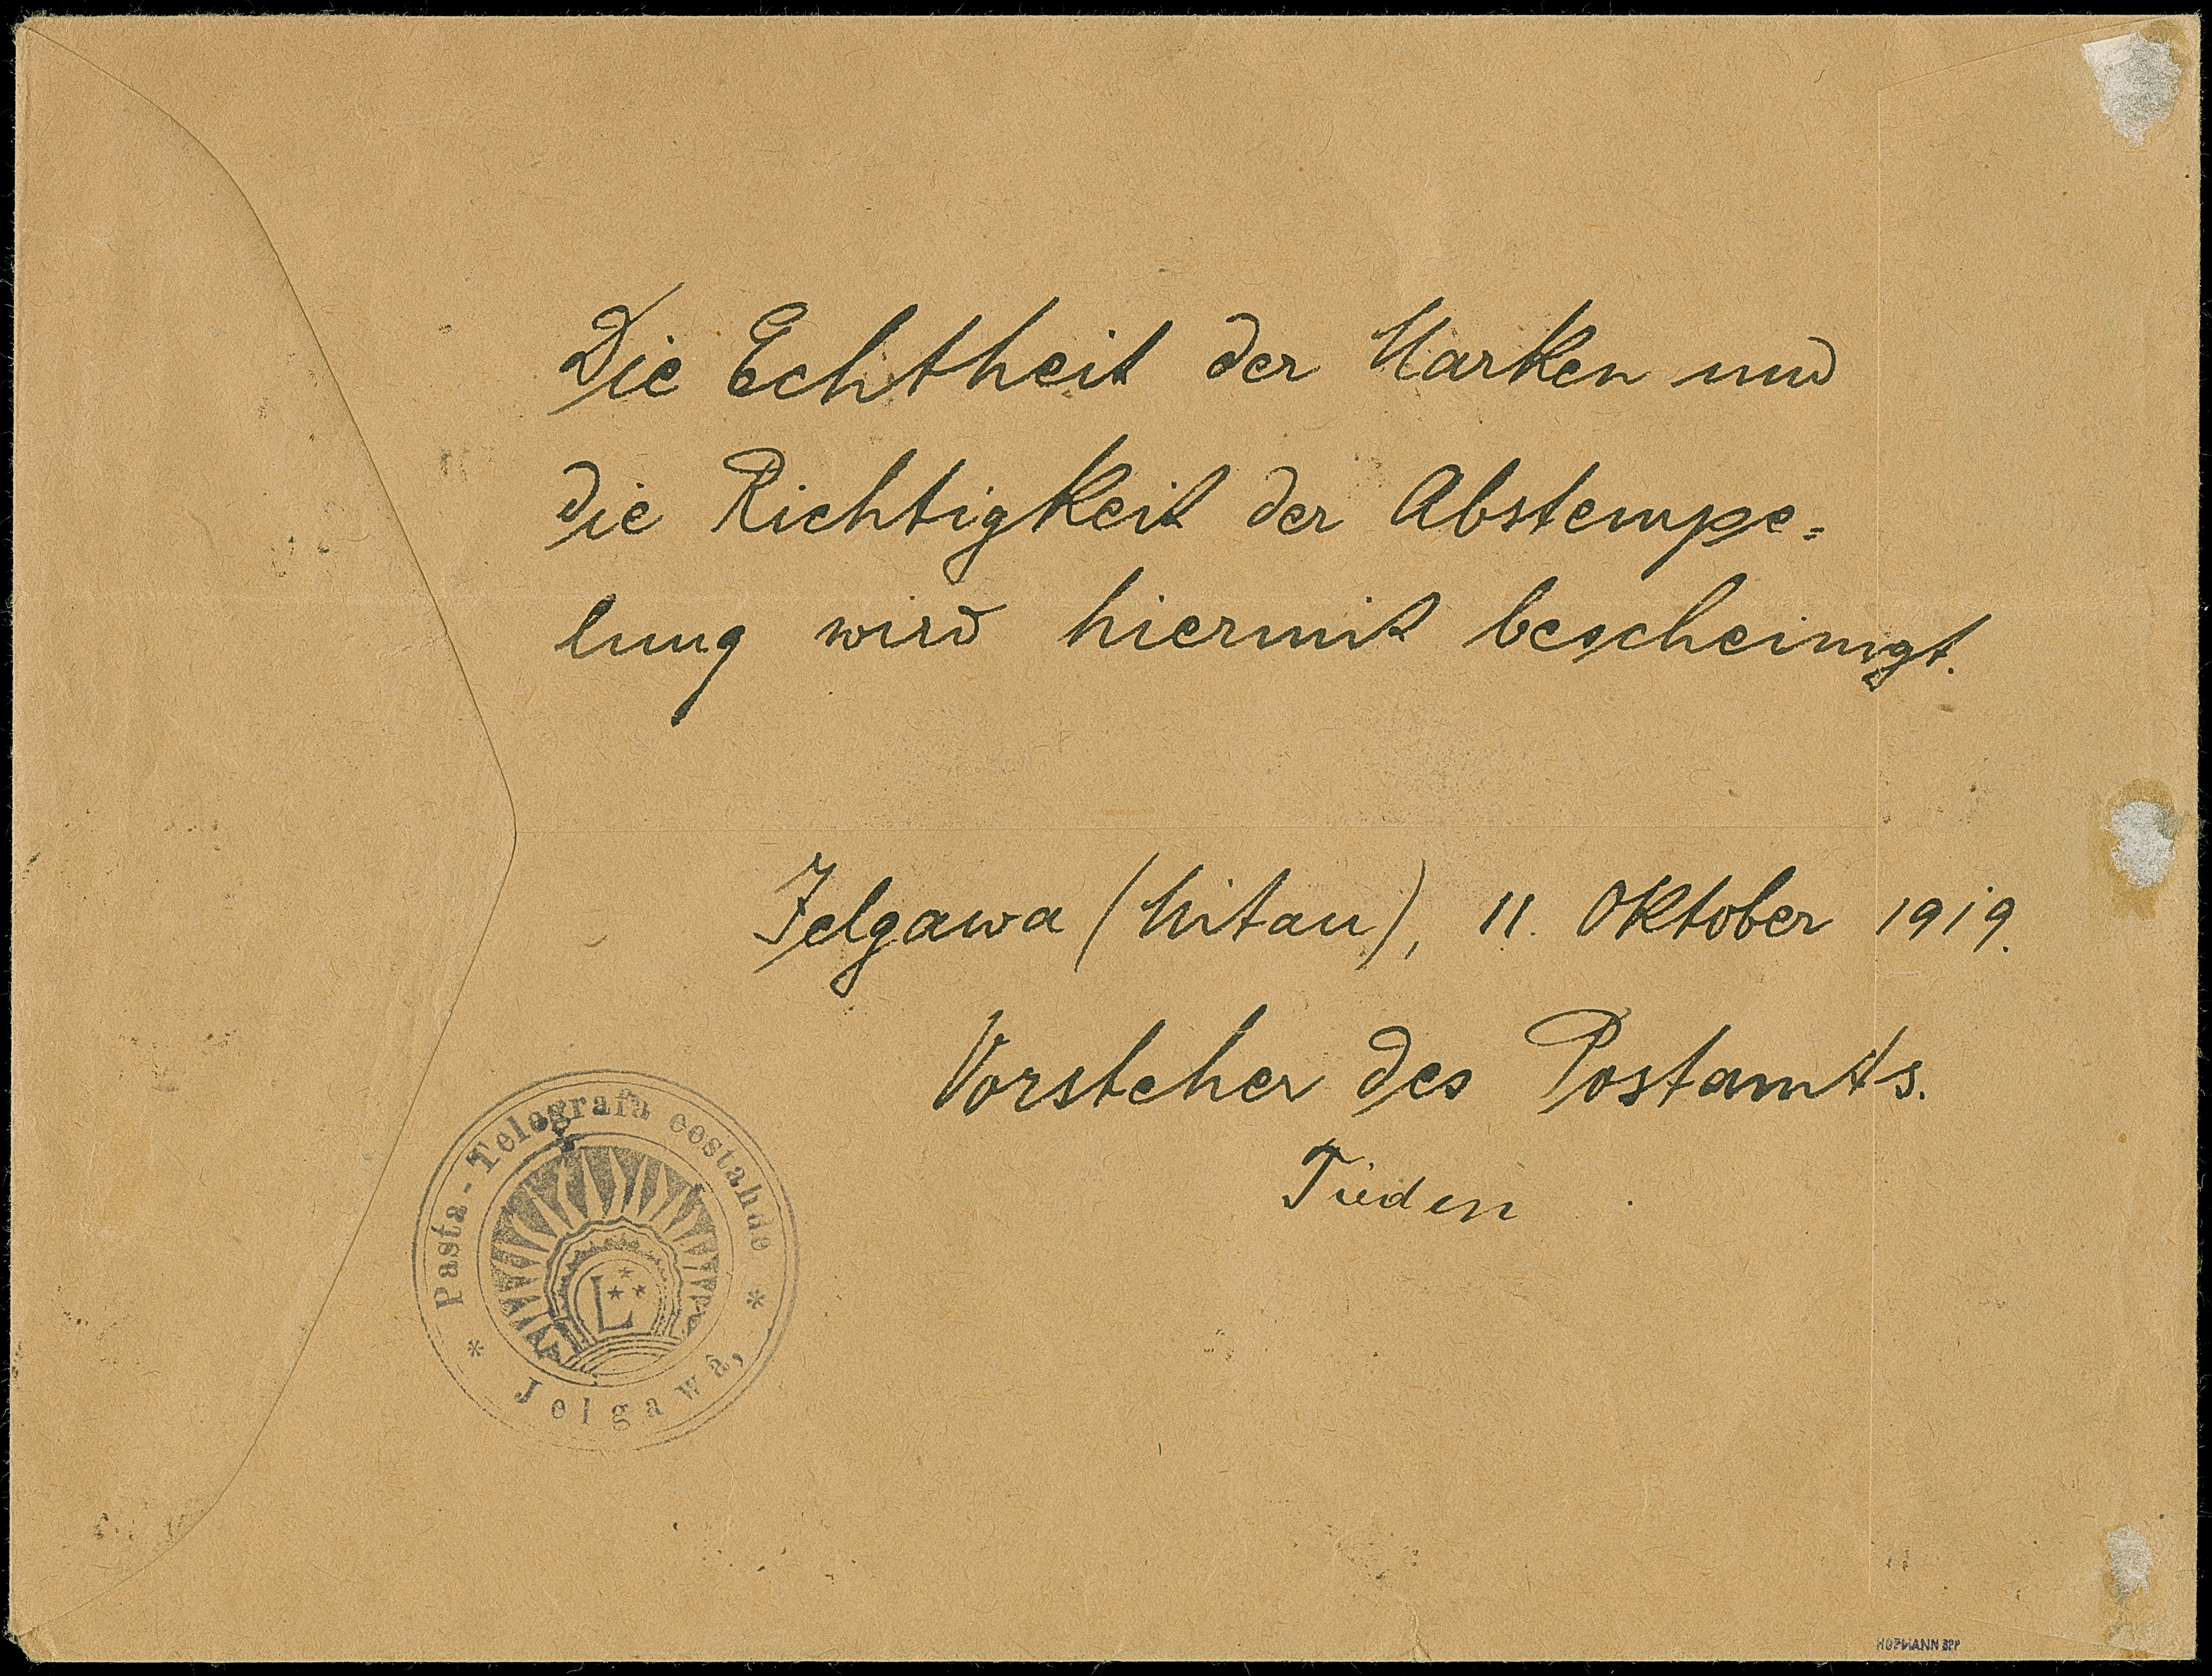 Die Echtheit der Marken und
die Richtigkeit der Abstempe=
lung wird hiermit bescheinigt.
Jelgawa (Mitau), 11. Oktober 1919.
Vorsteher des Postamts.
Pasta-Telegrafa eestahde
* Jelgawâ, *
L
HOFMANN BPP